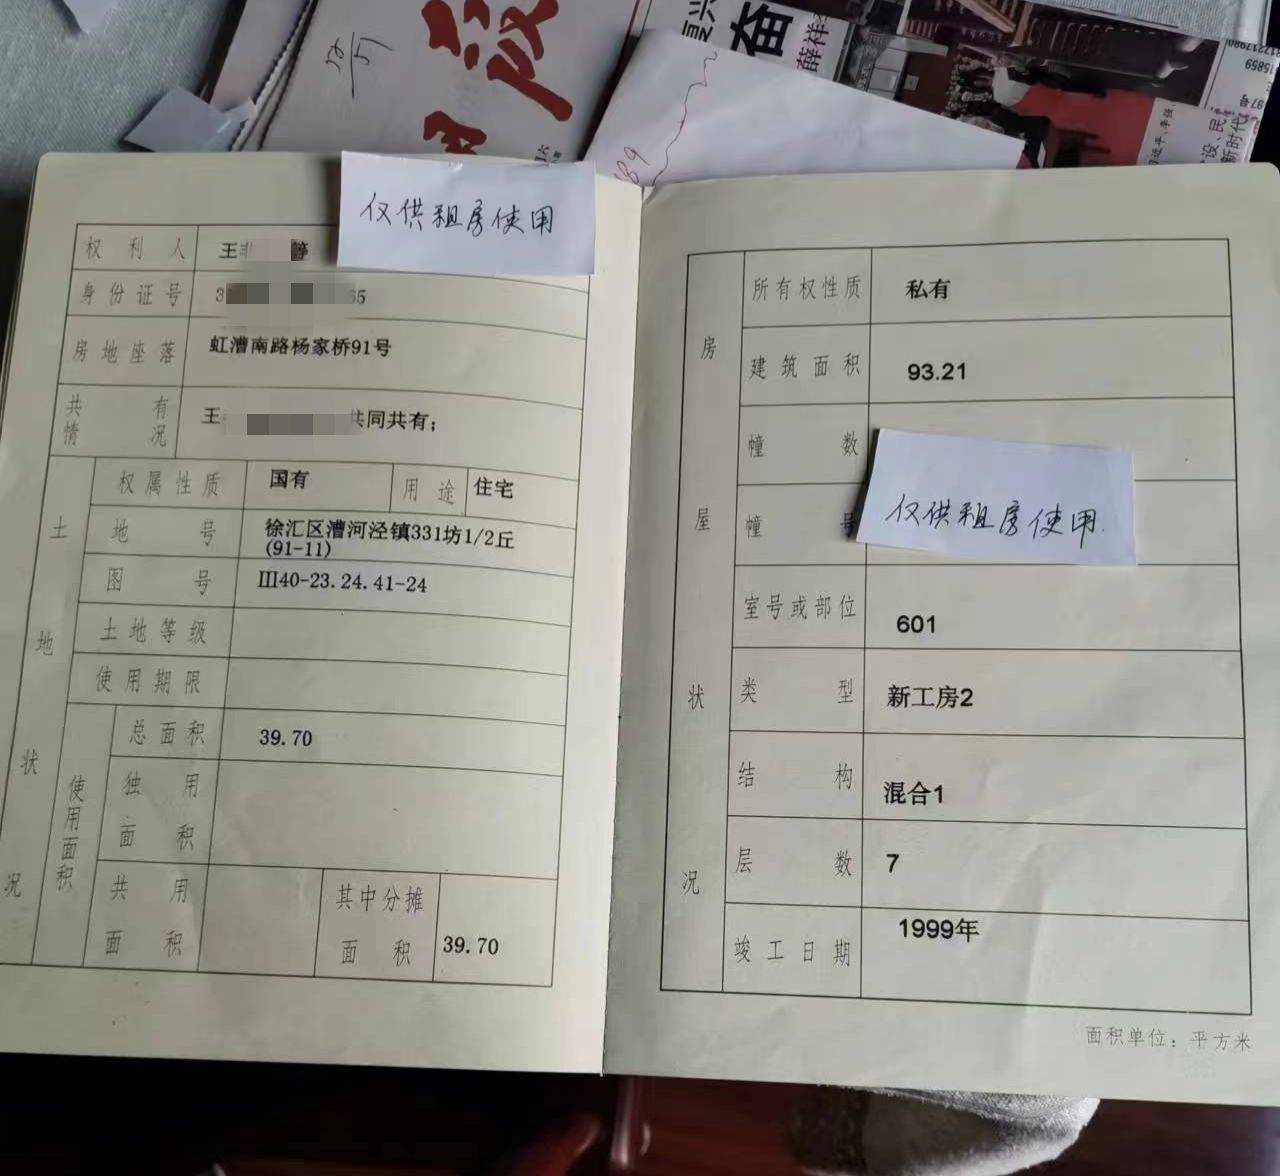 仅供租房使用
权利人 王
身份证号 3 65
房地座落 虹漕南路杨家桥91号
共有情况 王 共同共有;
土地状况
权属性质 国有 用途 住宅
地号 徐汇区漕河泾镇331坊1/2丘
(91-11)
图号 Ⅲ40-23.24.41-24
土地等级
使用期限
使用面积
总面积 39.70
独用面积
共用面积 其中分摊面积 39.70
房屋状况
所有权性质 私有
建筑面积 93.21
幢数
幢号
仅供租房使用.
室号或部位 601
类型 新工房2
结构 混合1
层数 7
竣工日期 1999年
面积单位：平方米
奋
薛祥